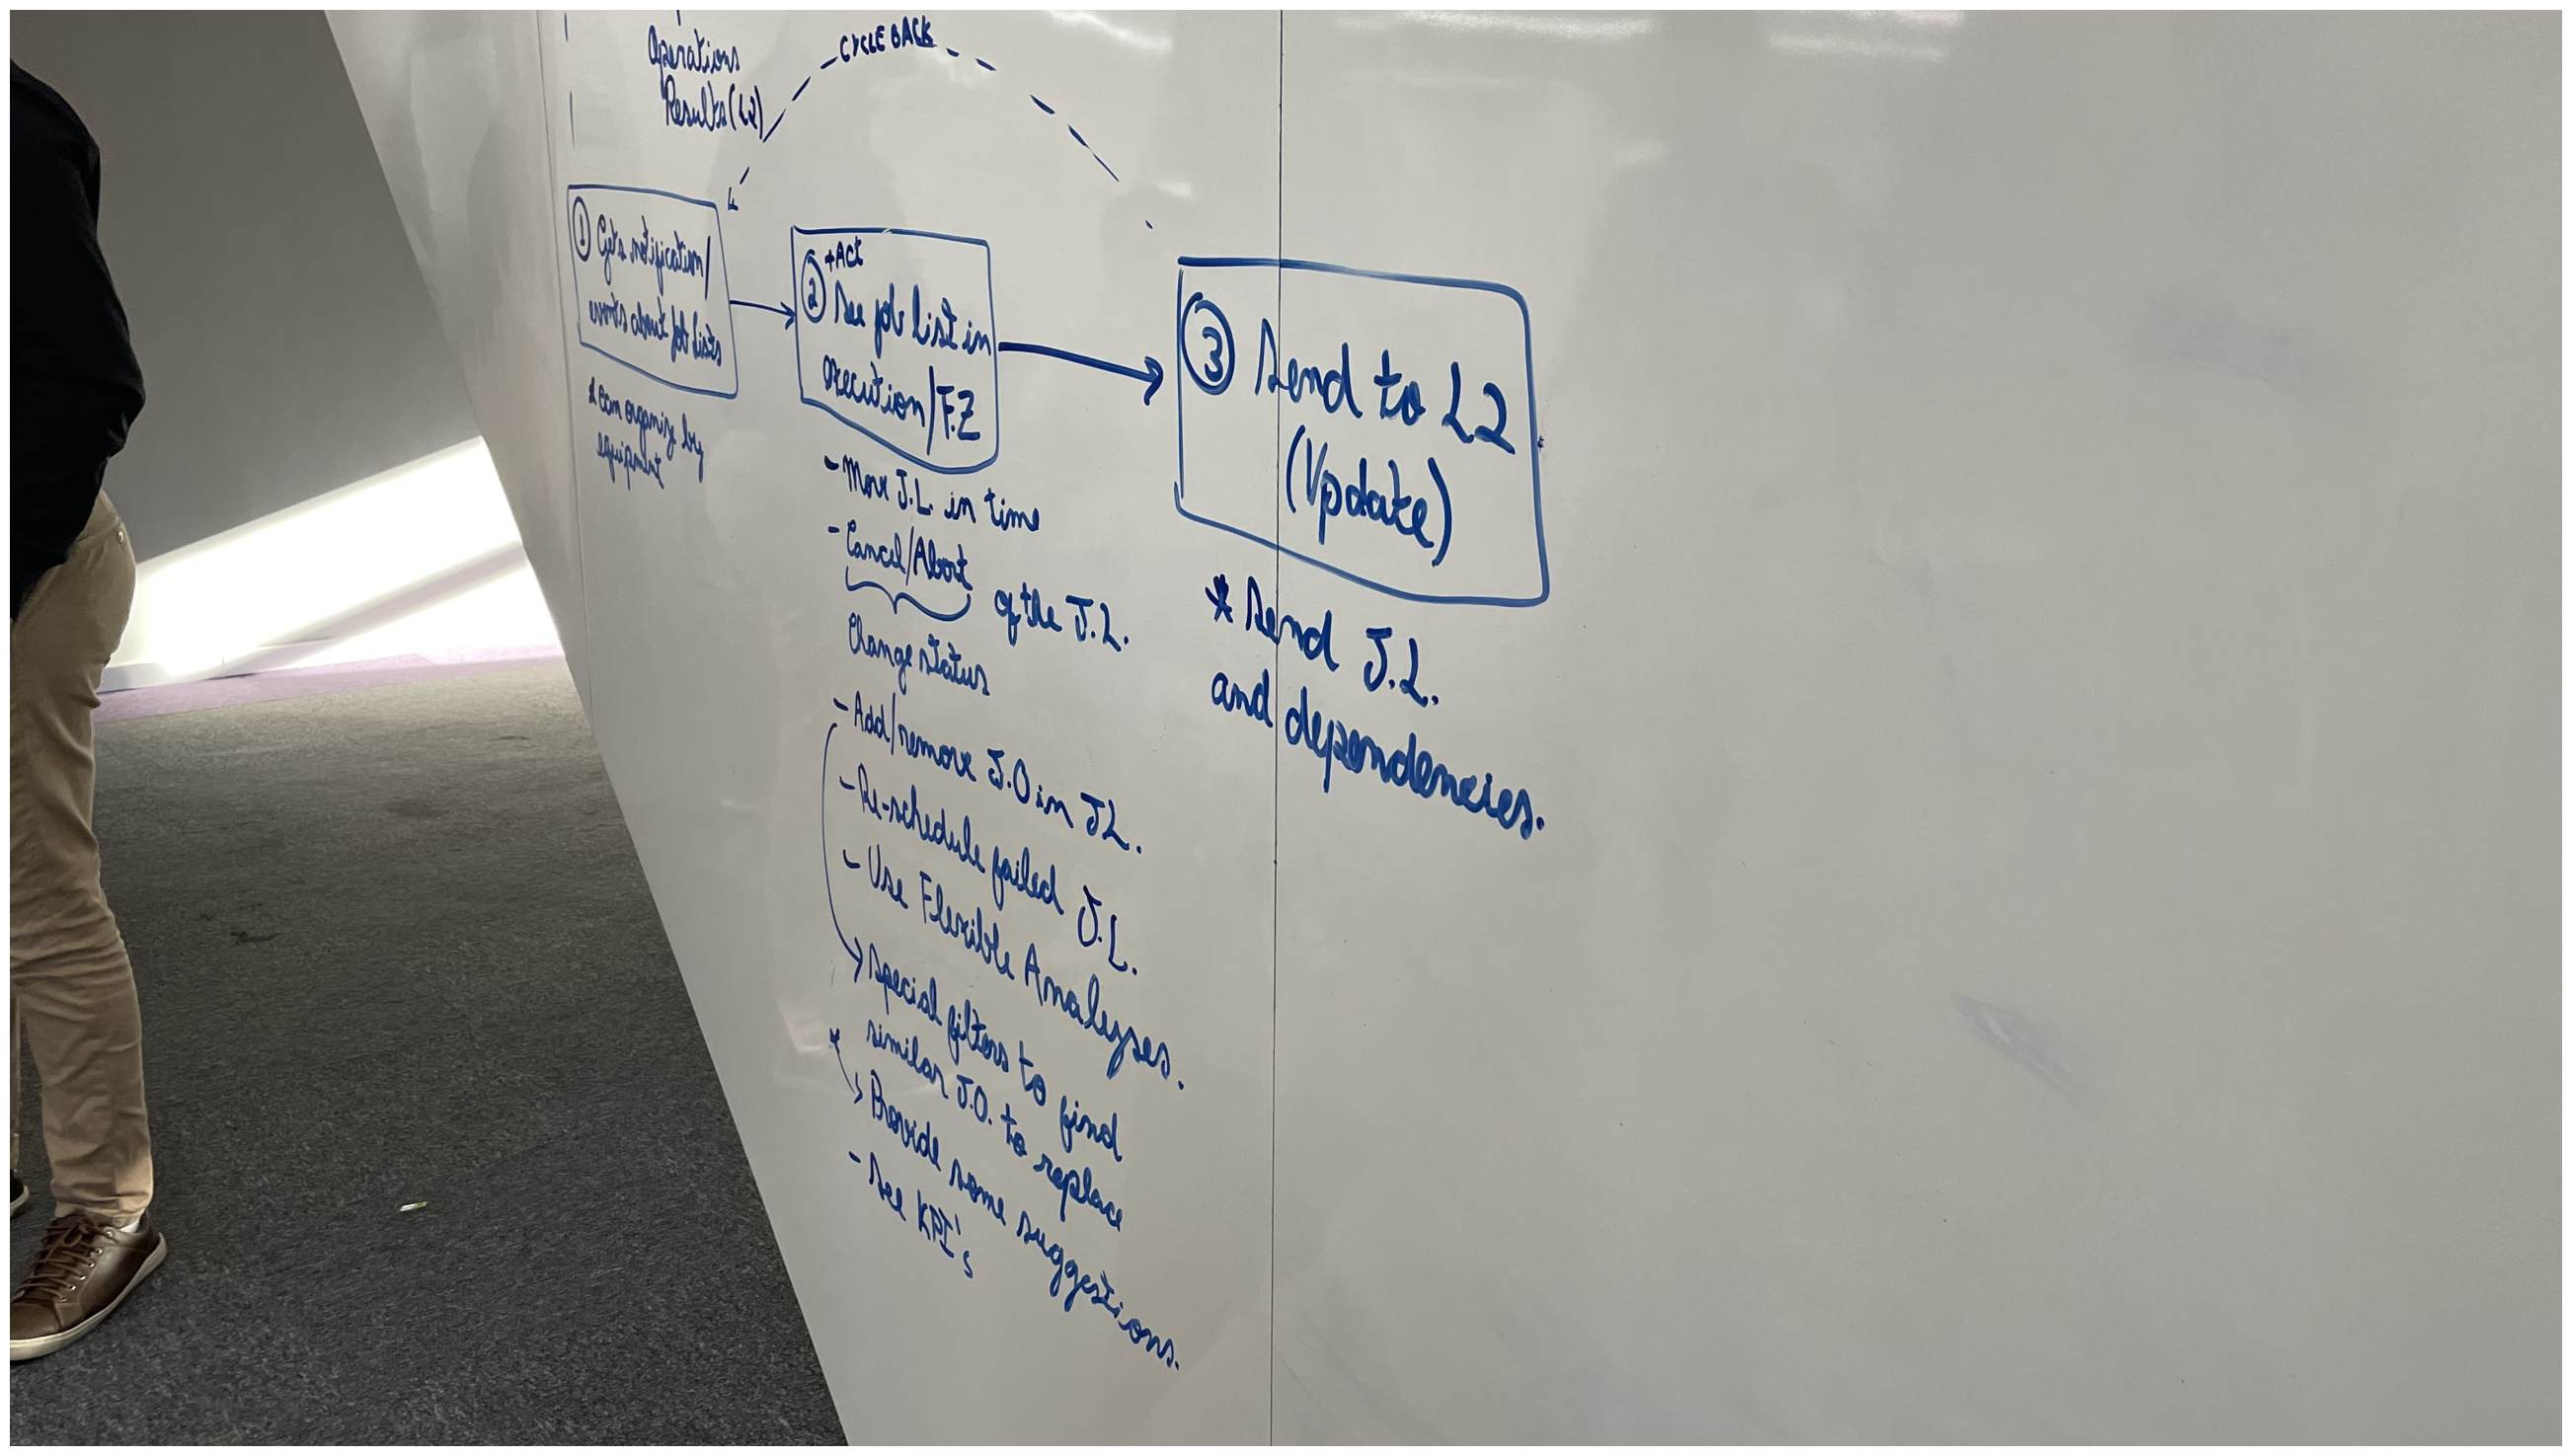 Operations
Results (L2)
CYCLE BACK
① Gets notification/
about job lists
* Can organize by
equipment
+Act
② See job list in
execution/F.Z
- Move J.L. in time
- Cancel/Abort
of the J.L.
Change status
- Add/remove J.O in J.L.
- Re-schedule failed J.L.
- Use Flexible Analyses.
Special filters to find
similar J.O. to replace
Provide some suggestions.
- See KPI's
③ Send to L2
(Update)
* Send J.L.
and dependencies.